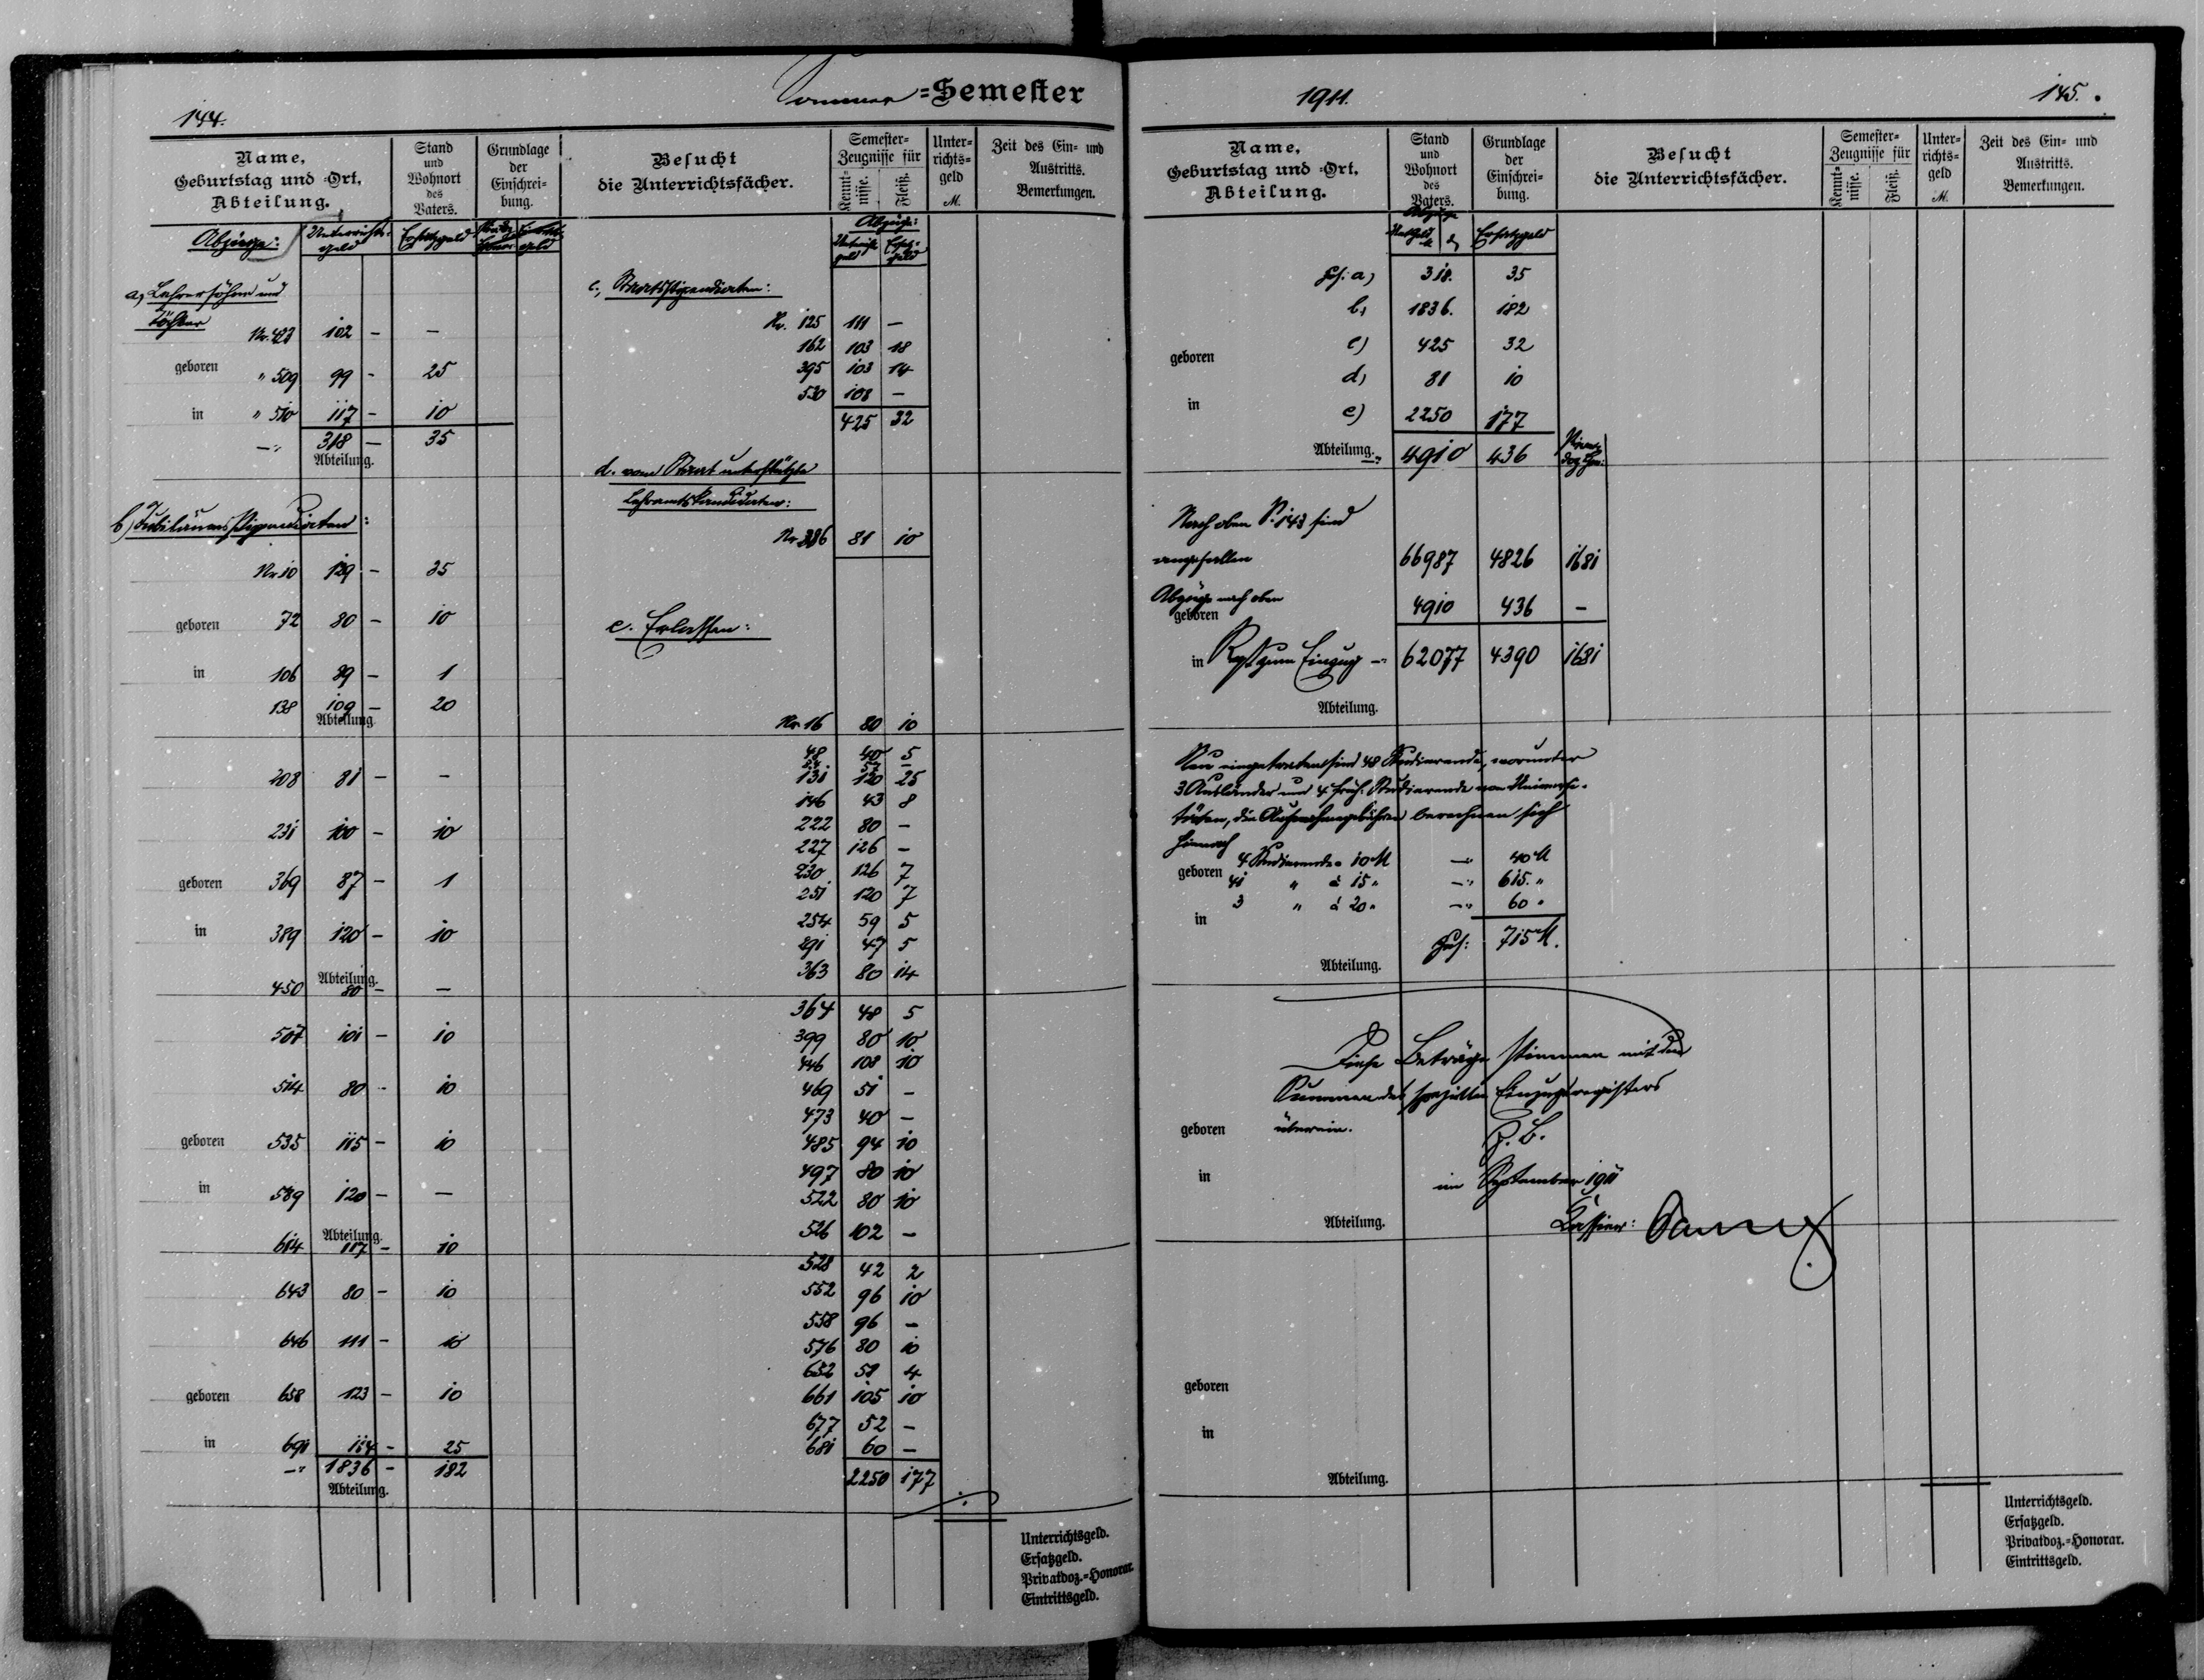 144.
Sommer=Semester
Name,
Geburtstag und =Ort,
Abteilung.
Stand
und
Wohnort
des
Vaters.
Grundlage
der
Einschrei=
bung.
Besucht
die Unterrichtsfächer.
Semester=
Zeugnisse für
Kennt=
nisse.
Fleiß.
Unter=
richts=
geld
M.
Zeit des Ein= und
Austritts.
Bemerkungen.
Abzüge:
Unterrichts-
geld
Ersatzgeld
a, Lehrersöhne und
Töchter
Nr. 423 102 – –
geboren " 509 99 – 25
in " 510 117 – 10
–" 318 – 35
Abteilung.
b) Jubiläumsstipendiaten:
Nr 10 129 – 35
geboren 72 80 – 10
in 106 89 – 1
138 109 – 20
Abteilung.
208 81 – –
231 100 – 10
geboren 369 87 – 1
in 389 120 – 10
Abteilung.
450 80 – –
507 101 – 10
514 80 – 10
geboren 535 115 – 10
in 589 120 – –
Abteilung.
614 117 – 10
643 80 – 10
646 111 – 10
geboren 658 123 – 10
in 691 114 – 25
–" 1836 – 182
Abteilung.
Abzüge:
Unterrichts
geld
Ersatz-
geld
c., Staatsstipendiaten:
Nr. 125 111 –
162 103 18
395 103 14
530 108 –
425 32
d. vom Staat unterstützte
Lehramtskandidaten:
Nr 386 81 10
e. Erlassen:
Nr 16 80 10
48 40 5
57 –
131 120 25
146 43 8
222 80 –
227 126 –
230 126 7
251 120 7
254 59 5
291 47 5
363 80 14
364 48 5
399 80 10
446 108 10
469 51 –
473 40 –
485 94 10
497 80 10
522 80 10
526 102 –
528 42 2
552 96 10
558 96 –
576 80 10
652 58 4
661 105 10
677 52 –
681 60 –
2250 177
Unterrichtsgeld.
Ersatzgeld.
Privatdoz.=Honorar.
Eintrittsgeld.
1911.
145.
Name,
Geburtstag und =Ort,
Abteilung.
Stand
und
Wohnort
des
Vaters.
Grundlage
der
Einschrei=
bung.
Besucht
die Unterrichtsfächer.
Semester=
Zeugnisse für
Kennt=
nisse.
Fleiß.
Unter=
richts=
geld
M.
Zeit des Ein= und
Austritts.
Bemerkungen.
Abzüge
Ersatzgeld
a) 318. 35
b, 1836. 182
geboren c) 425 32
d) 81 10
in e) 2250 177
Abteilung. –" 4910 436
Nach oben S. 143 sind
angefallen 66987 4826 1681
Abzüge nach oben 4910 436 –
geboren
in Rest zum Einzug –" 62077 4390 1681
Abteilung.
Neu eingetreten sind 48 Studierende, worunter
3 Ausländer und 4 früh. Studierende von Universi-
täten, die Aufnahmegebühren berechnen sich
hienach
geboren 4 Studierende à 10 M –" 40 M
41 " à 15 " –" 615. "
3 " à 20 " –" 60 "
in
Zus: 715 M.
Abteilung.
Diese Beträge stimmen mit den
Summen des speziellen Einzugsregisters
geboren überein.
Z. B.
in im September 1911
Abteilung. Kassier:
geboren
in
Abteilung.
Unterrichtsgeld.
Ersatzgeld.
Privatdoz.=Honorar.
Eintrittsgeld.